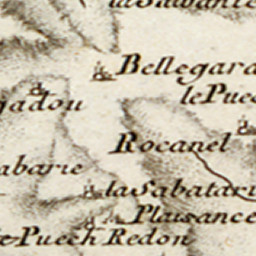 la Sabatarie
Bellegard
le Puec
gadou
Rocanel
abarie
la Sabatari
Plaisance
Puech Redon